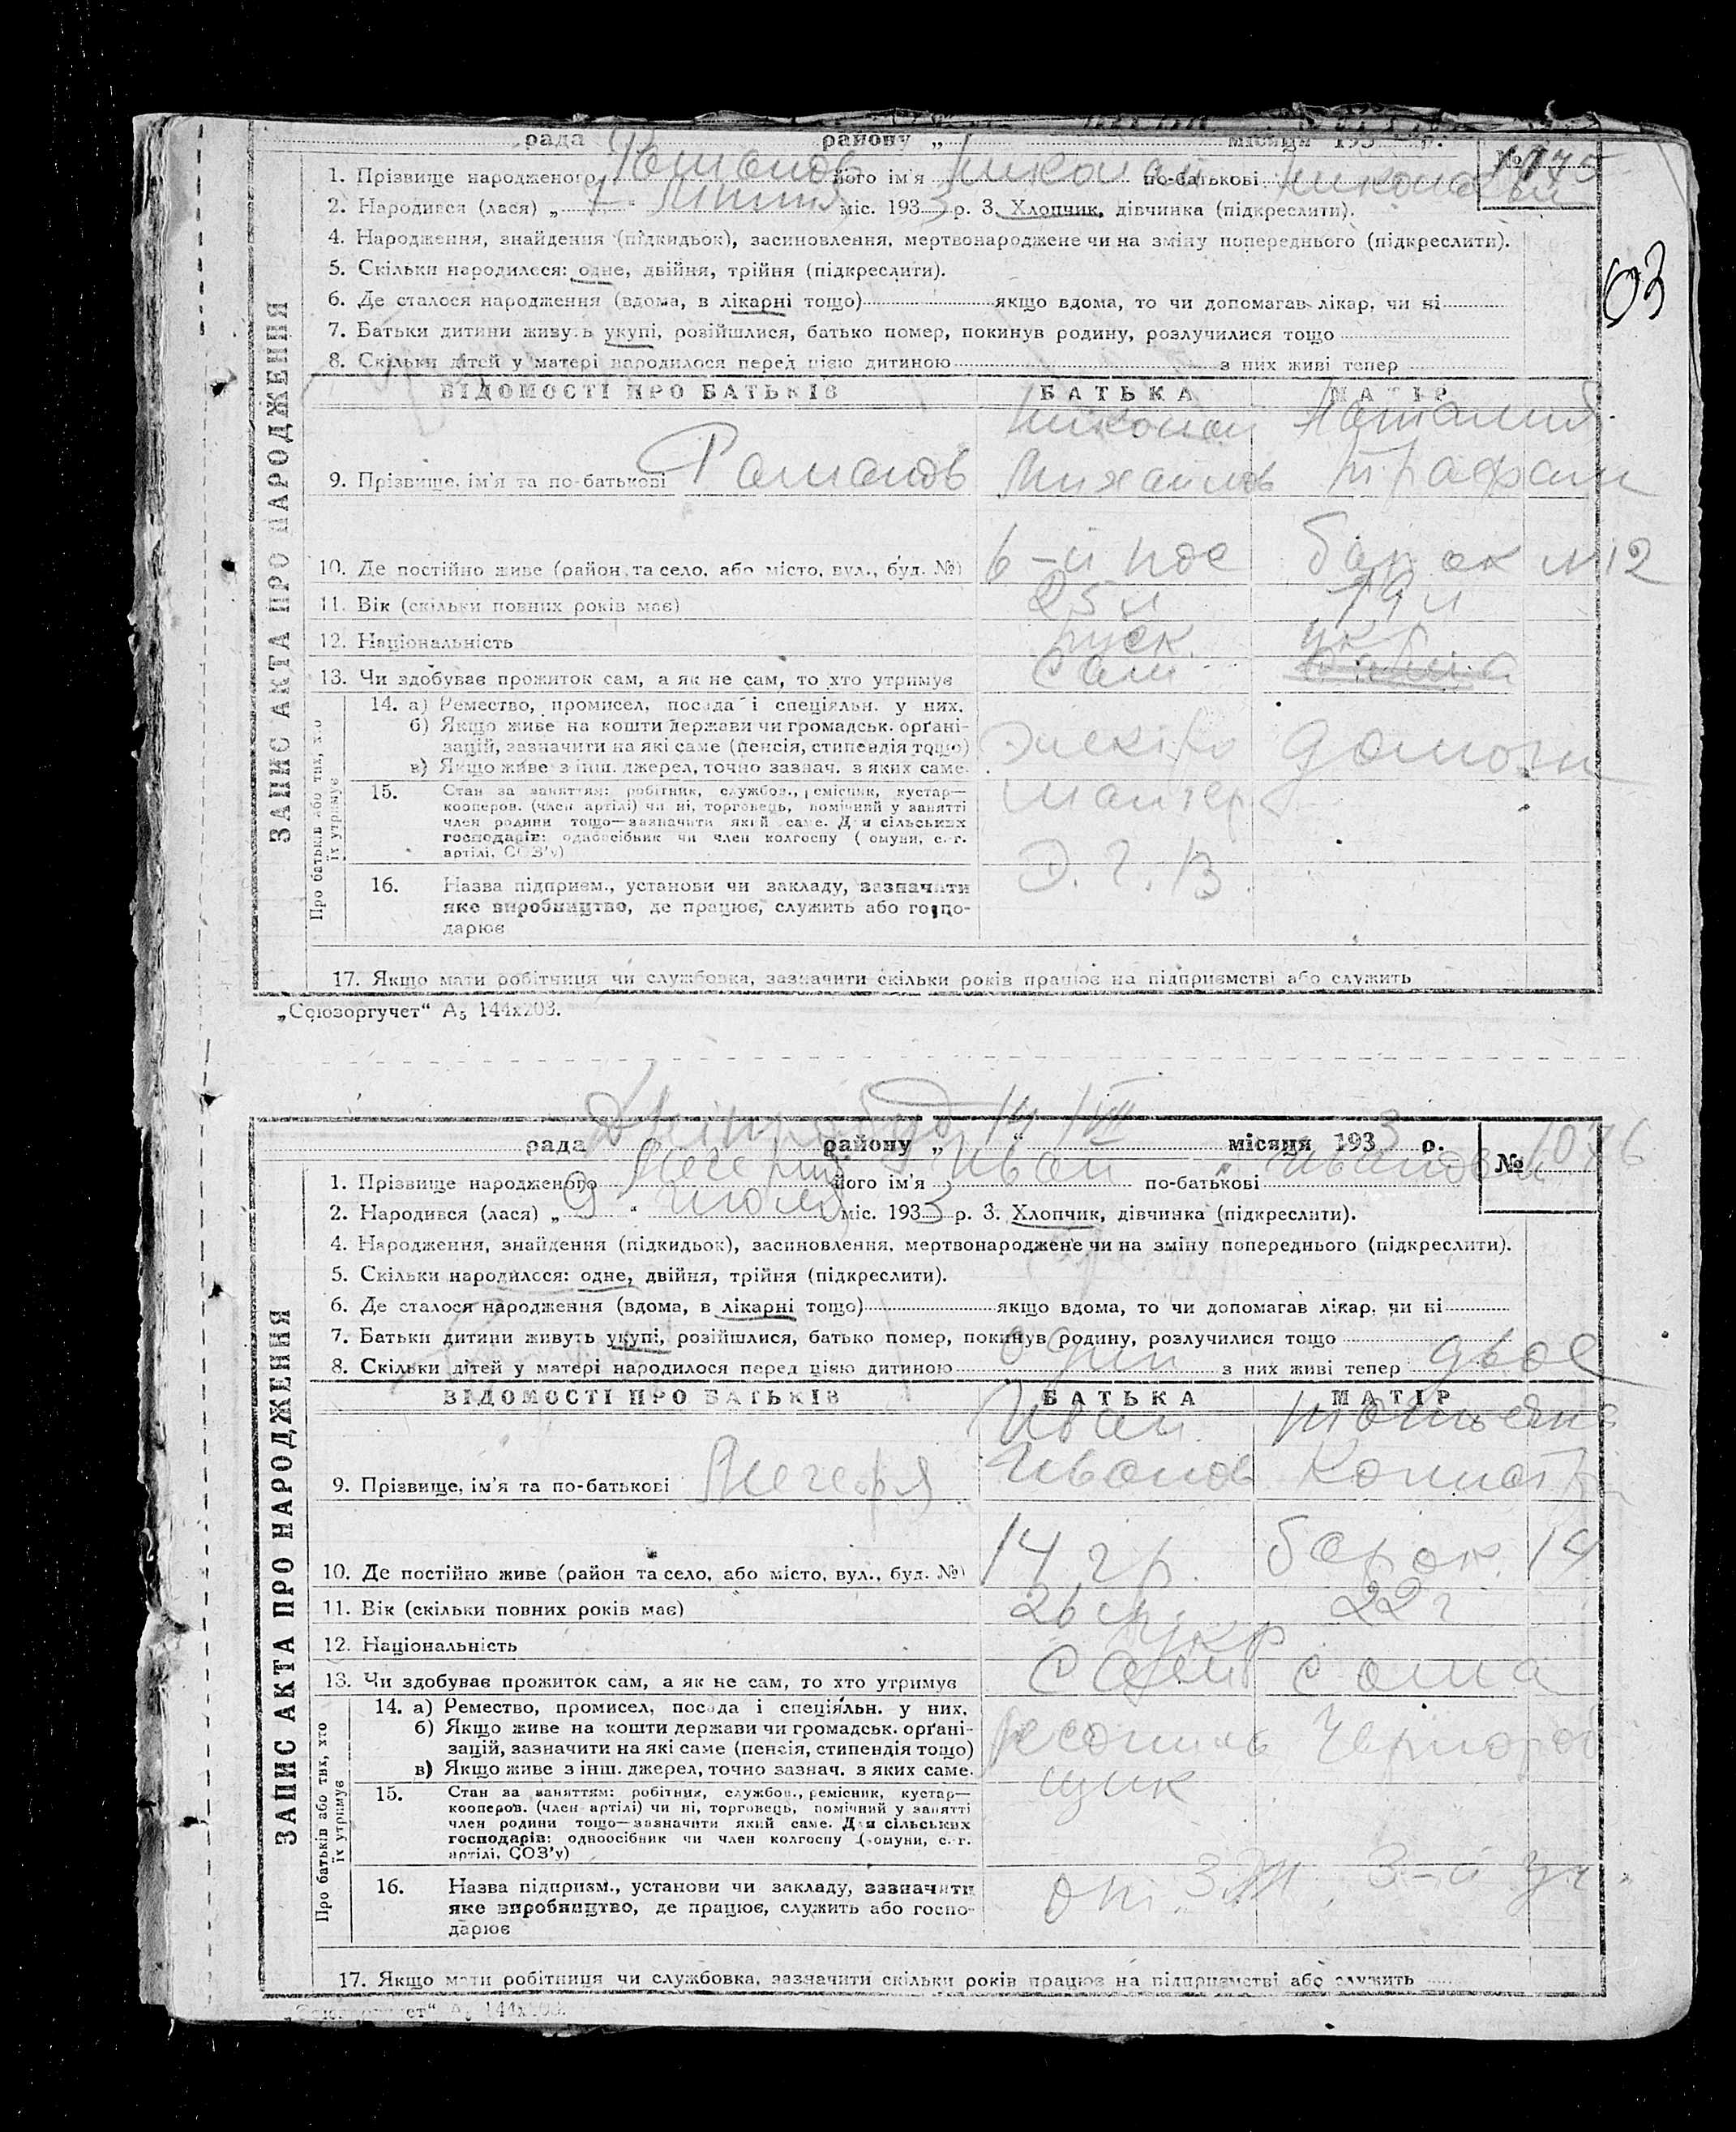 рада району „ місяця 193 р.
№ 1075
1. Прізвище народженого Романов його ім'я Николай по-батькові Николаевич
2. Народився (лася) „ " міс. 1933 р. 3. Хлопчик, дівчинка (підкреслити).
4. Народження, знайдення (підкидьок), засиновлення, мертвонароджене чи на зміну попереднього (підкреслити).
03
5. Скільки народилося: одне, двійня, трійня (підкреслити).
6. Де сталося народження (вдома, в лікарні тощо) якщо вдома, то чи допомагав лікар, чи ні
7. Батьки дитини живуть укупі, розійшлися, батько помер, покинув родину, розлучилися тощо
8. Скільки дітей у матері народилося перед цією дитиною з них живі тепер
ЗАПИС АКТА ПРО НАРОДЖЕННЯ
ВІДОМОСТІ ПРО БАТЬКІВ БАТЬКА МАТІР
Николай Наталия
9. Прізвище, ім'я та по-батькові Романов Михайлов Трафим
10. Де постійно живе (район та село, або місто, вул., буд. №) 6-й пос барак №12
11. Вік (скільки повних років має) 25 л 19 л
12. Національність руск. укр
13. Чи здобуває прожиток сам, а як не сам, то хто утримує сам
Про батьків або тих, хто їх утримує
14. а) Ремество, промисел, посада і спеціяльн. у них.
б) Якщо живе на кошти держави чи громадськ. орґані-
зацій, зазначити на які саме (пенсія, стипендія тощо) Электро домохоз
в) Якщо живе з інш. джерел, точно зазнач. з яких саме.
15. Стан за заняттям: робітник, службов., ремісник, кустар— монтер
кооперов. (член артілі) чи ні, торговець, помічний у занятті
член родини тощо—зазначити який саме. Для сільських
господарів: одноосібник чи член колгоспу (комуни, с.-г.
артілі, СОЗ'у)
16. Назва підприєм., установи чи закладу, зазначити Э. Г. В.
яке виробництво, де працює, служить або госпо-
дарює
17. Якщо мати робітниця чи службовка, зазначити скільки років працює на підприємстві або служить
„Союзоргучет" А₅ 144х203.
рада Дніпробуд району „ 14 " VII місяця 1933 р.
№ 1076
1. Прізвище народженого його ім'я Иван по-батькові Иванович
2. Народився (лася) „ 9 " июля міс. 1933 р. 3. Хлопчик, дівчинка (підкреслити).
4. Народження, знайдення (підкидьок), засиновлення, мертвонароджене чи на зміну попереднього (підкреслити).
5. Скільки народилося: одне, двійня, трійня (підкреслити).
6. Де сталося народження (вдома, в лікарні тощо) якщо вдома, то чи допомагав лікар, чи ні
7. Батьки дитини живуть укупі, розійшлися, батько помер, покинув родину, розлучилися тощо
8. Скільки дітей у матері народилося перед цією дитиною один з них живі тепер двое
ЗАПИС АКТА ПРО НАРОДЖЕННЯ
ВІДОМОСТІ ПРО БАТЬКІВ БАТЬКА МАТІР
Иван Татьяна
9. Прізвище, ім'я та по-батькові Иванов
10. Де постійно живе (район та село, або місто, вул., буд. №) 14 гр. барак 14
11. Вік (скільки повних років має) 26 22 г
12. Національність укр
13. Чи здобуває прожиток сам, а як не сам, то хто утримує сам сама
Про батьків або тих, хто їх утримує
14. а) Ремество, промисел, посада і спеціяльн. у них.
б) Якщо живе на кошти держави чи громадськ. орґані-
зацій, зазначити на які саме (пенсія, стипендія тощо) Чернороб
в) Якщо живе з інш. джерел, точно зазнач. з яких саме.
15. Стан за заняттям: робітник, службов., ремісник, кустар— щик
кооперов. (член артілі) чи ні, торговець, помічний у занятті
член родини тощо—зазначити який саме. Для сільських
господарів: одноосібник чи член колгоспу (комуни, с.-г.
артілі, СОЗ'у)
16. Назва підприєм., установи чи закладу, зазначити 3-й уч.
яке виробництво, де працює, служить або госпо-
дарює
17. Якщо мати робітниця чи службовка, зазначити скільки років працює на підприємстві або служить
„Союзоргучет" А₅ 144х203.